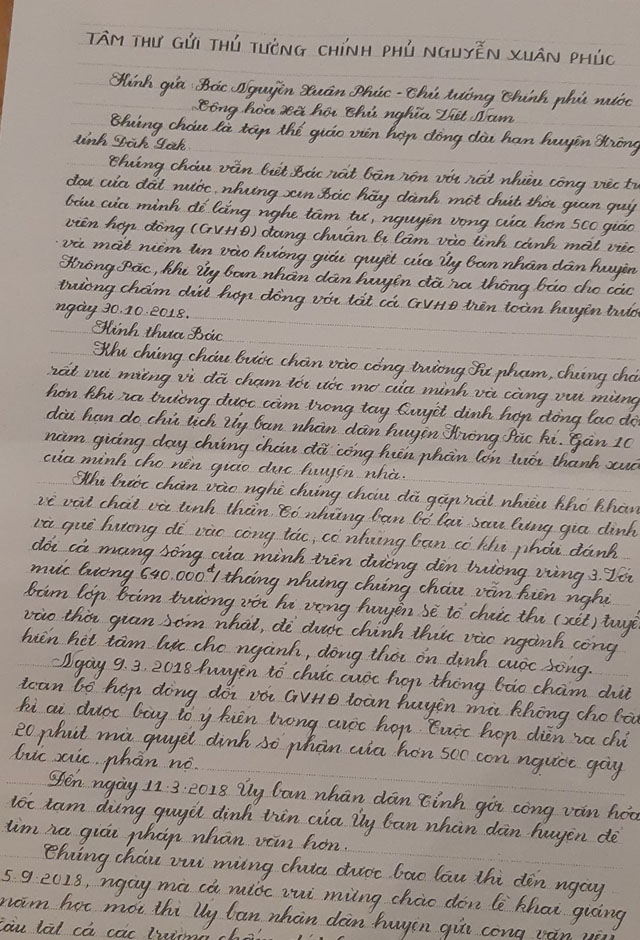 TÂM THƯ GỬI THỦ TƯỚNG CHÍNH PHỦ NGUYỄN XUÂN PHÚC
Kính gửi: Bác Nguyễn Xuân Phúc - Thủ tướng Chính phủ nước
Cộng hòa Xã hội Chủ nghĩa Việt Nam
Chúng cháu là tập thể giáo viên hợp đồng dài hạn huyện Krông
tỉnh Đăk Lăk.
Chúng cháu vẫn biết Bác rất bận rộn với rất nhiều công việc
đại của đất nước, nhưng xin Bác hãy dành một chút thời gian quý
báu của mình để lắng nghe tâm tư, nguyện vọng của hơn 500 giáo
viên hợp đồng (GVHĐ) đang chuẩn bị lâm vào tình cảnh mất việc
và mất niềm tin vào hướng giải quyết của Ủy ban nhân dân huyện
Krông Păc, khi Ủy ban nhân dân huyện đã ra thông báo cho các
trường chấm dứt hợp đồng với tất cả GVHĐ trên toàn huyện trước
ngày 30.10.2018.
Kính thưa Bác
Khi chúng cháu bước chân vào cổng trường Sư phạm, chúng
rất vui mừng vì đã chạm tới ước mơ của mình và càng vui mừng
hơn khi ra trường được cầm trong tay Quyết định hợp đồng lao
dài hạn do chủ tịch Ủy ban nhân dân huyện Krông Păc kí. Gần 10
năm giảng dạy chúng cháu đã cống hiến phần lớn tuổi thanh
của mình cho nền giáo dục huyện nhà.
Khi bước chân vào nghề chúng cháu đã gặp rất nhiều khó khăn
về vật chất và tinh thần. Có những bạn bỏ lại sau lưng gia đình
và quê hương để vào công tác, có những bạn có khi phải đánh
đổi cả mạng sống của mình trên đường đến trường vùng 3. Với
mức lương 640.000đ/tháng nhưng chúng cháu vẫn kiên nghị
bám lớp bám trường với hi vọng huyện sẽ tổ chức thi (xét)
vào thời gian sớm nhất, để được chính thức vào ngành cống
hiến hết tâm lực cho ngành, đồng thời ổn định cuộc sống.
Ngày 9.3.2018 huyện tổ chức cuộc họp thông báo chấm dứt
toàn bộ hợp đồng đối với GVHĐ toàn huyện mà không cho bất
kì ai được bày tỏ ý kiến trong cuộc họp. Cuộc họp diễn ra chỉ
20 phút mà quyết định số phận của hơn 500 con người gây
bức xúc, phẫn nộ.
Đến ngày 11.3.2018 Ủy ban nhân dân Tỉnh gửi công văn hỏa
tốc tạm dừng quyết định trên của Ủy ban nhân dân huyện để
tìm ra giải pháp nhân văn hơn.
Chúng cháu vui mừng chưa được bao lâu thì đến ngày
5.9.2018, ngày mà cả nước vui mừng chào đón lễ khai giảng
năm học mới thì Ủy ban nhân dân huyện gửi công văn yêu
cầu tất cả các trường chấm